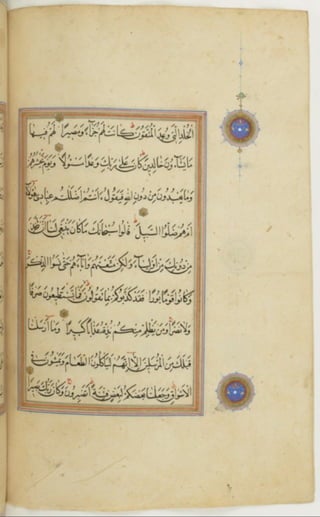 الخلد التي وعد المتقون كانت لهم جزاء ومصيرا لهم فيها
ما يشاؤن خالدين كان على ربك وعدا مسئولا ويوم يحشرهم
وما يعبدون من دون الله فيقول ءانتم اضللتم عبادي هؤلاء
ام هم ضلوا السبيل قالوا سبحانك ما كان ينبغي لنا ان نتخذ
من دونك من اولياء ولكن متعتهم وآباءهم حتى نسوا الذكر
وكانوا قوما بورا فقد كذبوكم بما تقولون فما تستطيعون صرفا
ولا نصرا ومن يظلم منكم نذقه عذابا كبيرا وما ارسلنا
قبلك من المرسلين الا انهم ليأكلون الطعام ويمشون في
الاسواق وجعلنا بعضكم لبعض فتنة اتصبرون وكان ربك بصيرا